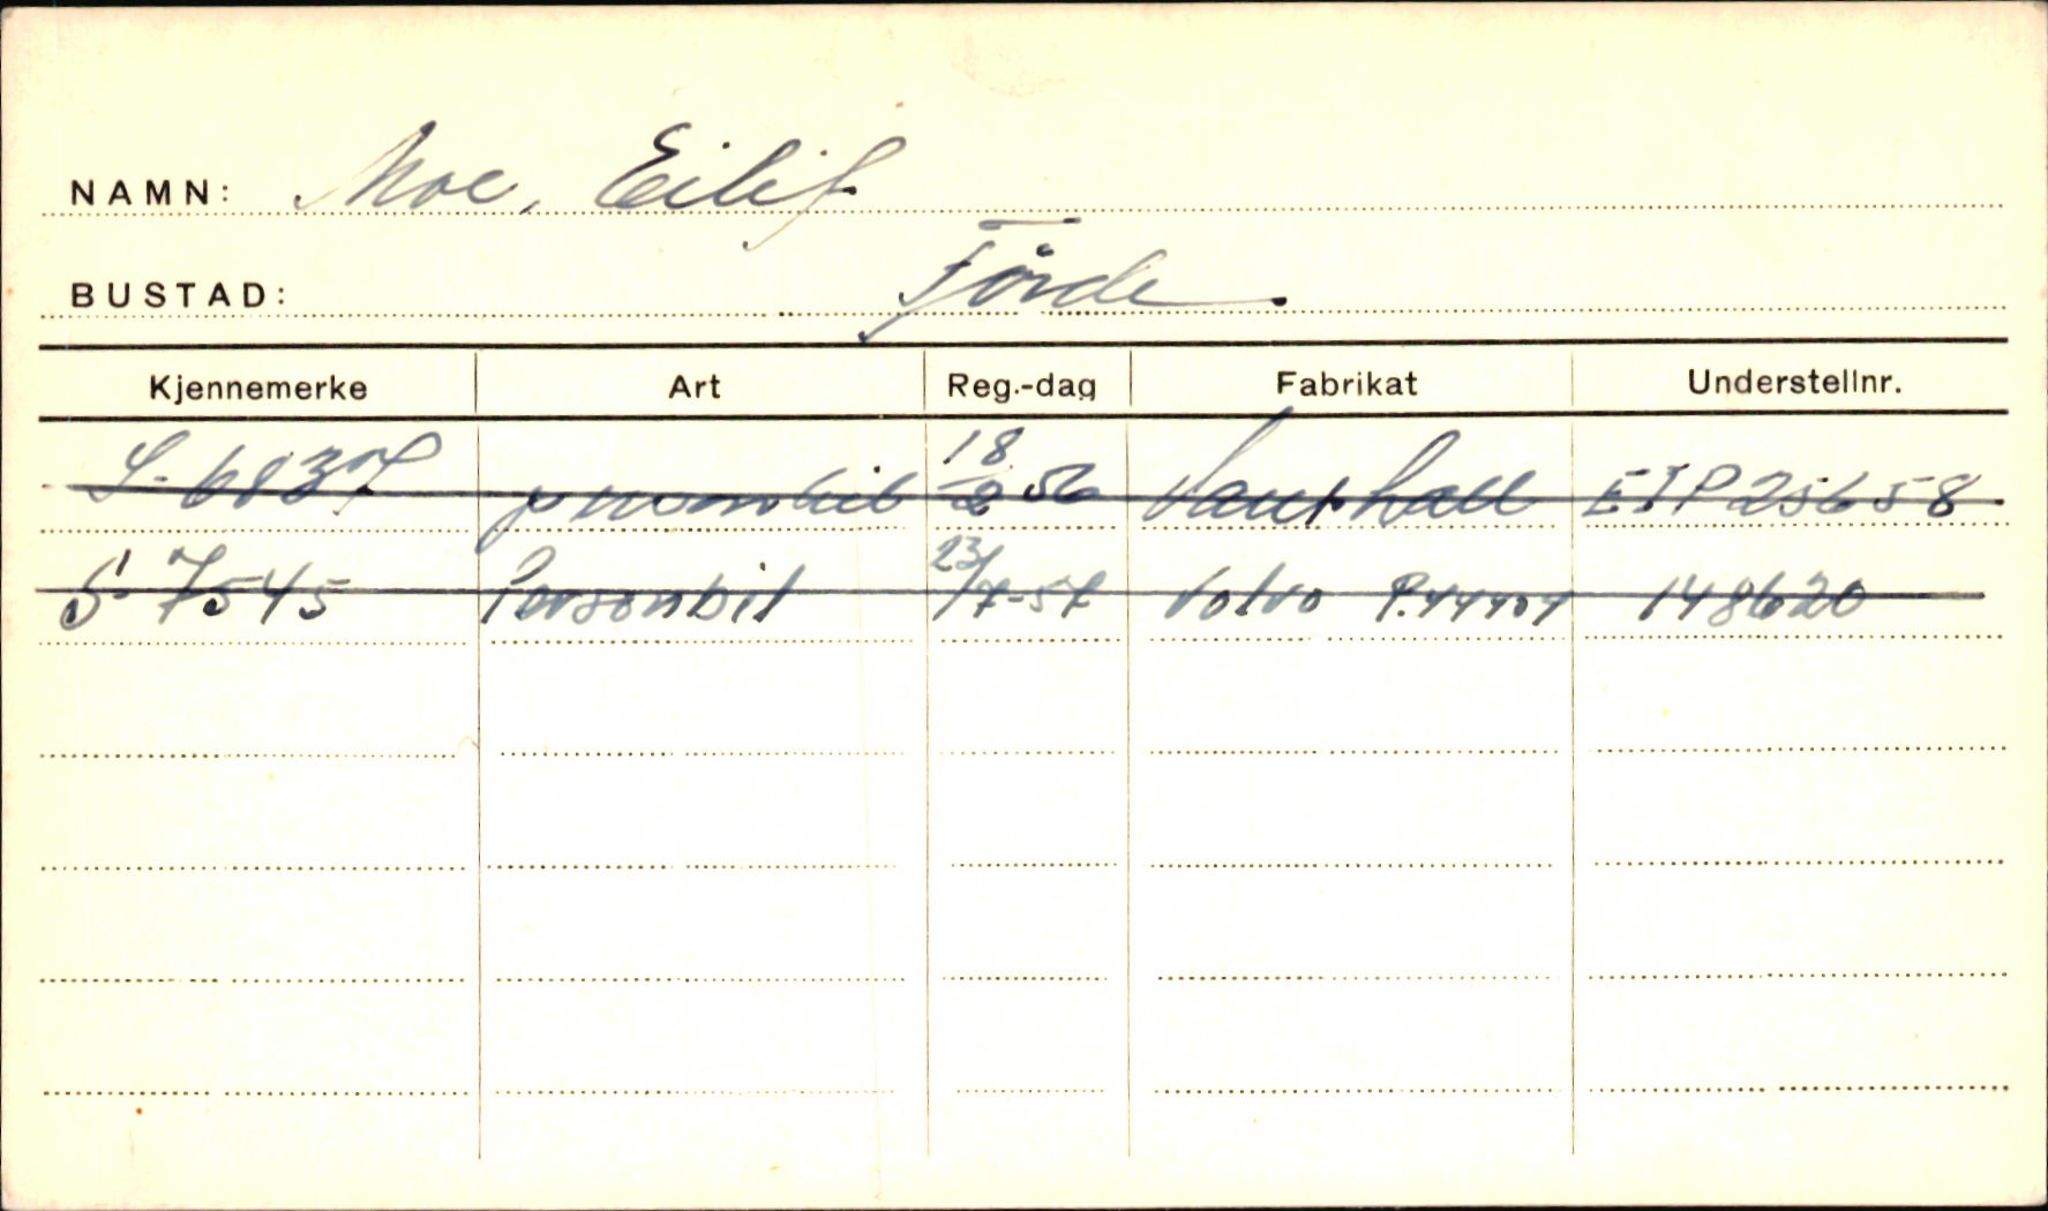 NAMN: Moe, Eilif
BUSTAD: Förde
Kjennemerke Art Reg.-dag Fabrikat Understellnr.
S-6837 personbil 18/2 56 Vauxhall EIP25658
S-7545 Personbil 23/7-57 Volvo P.44404 148620